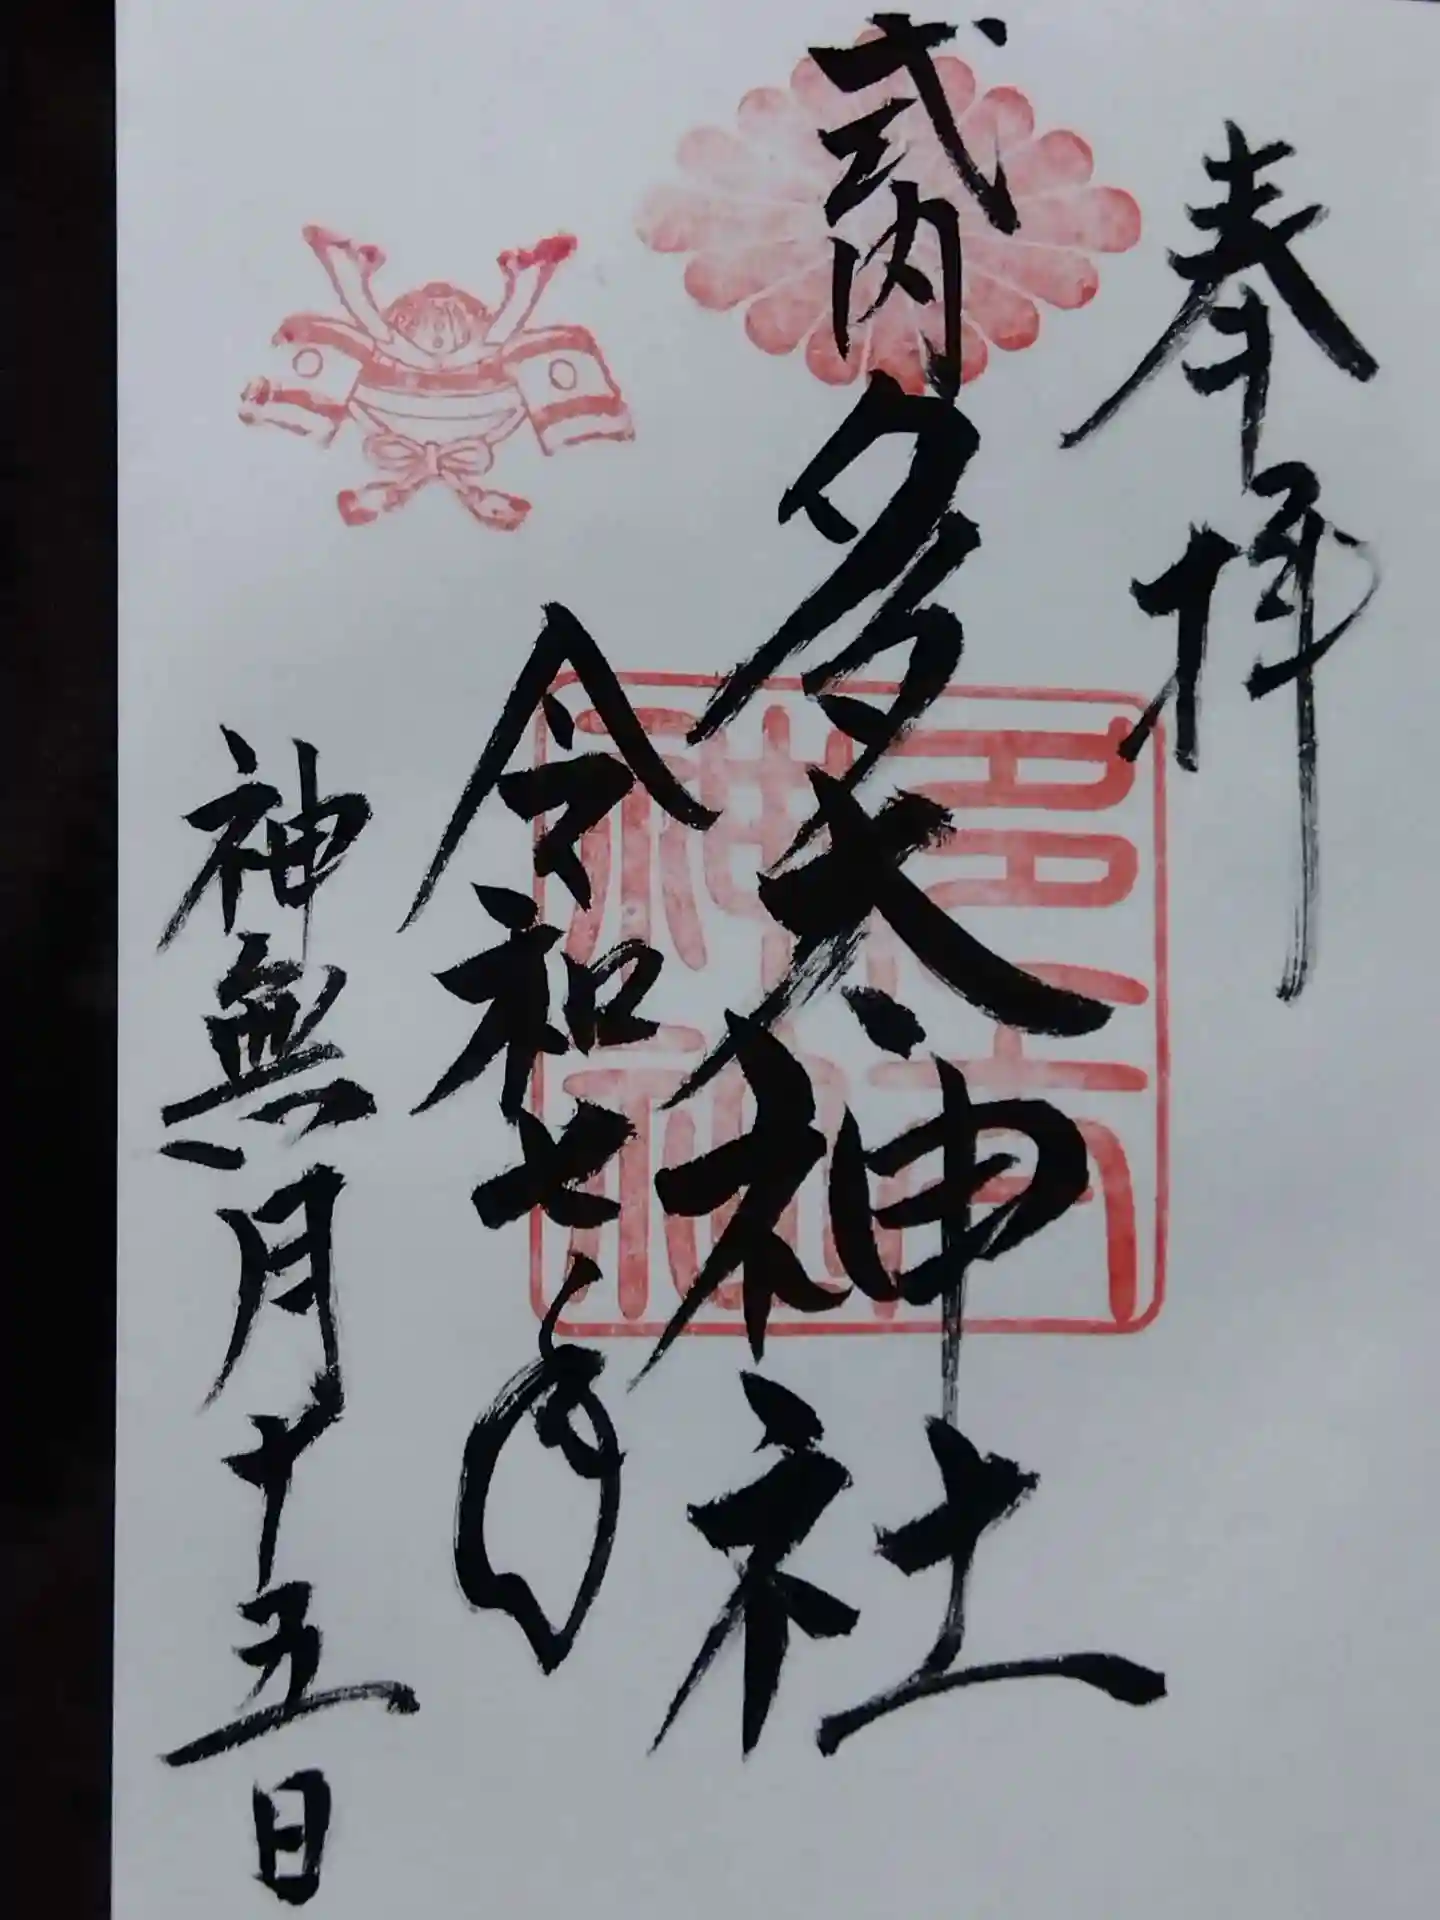 奉拝
式内多太神社
令和七年
神無月十五日
多太神社